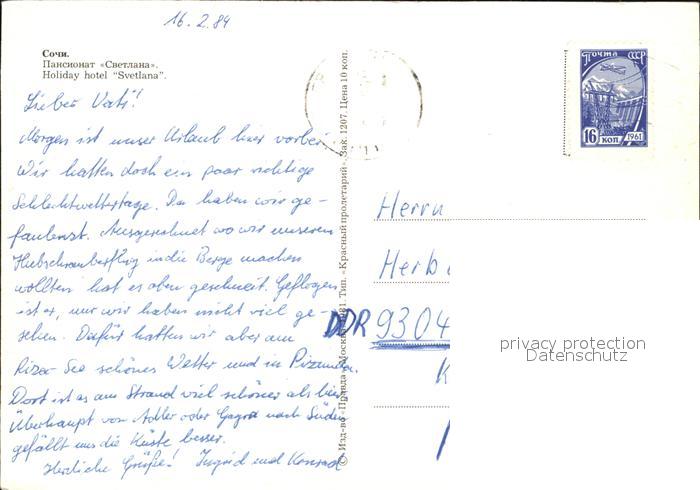 16.2.84
Сочи.
Пансионат «Светлана».
Holiday hotel "Svetlana".
Lieber Vati!
Morgen ist unser Urlaub hier vorbei.
Wir hatten doch ein paar richtige
Schlechtwettertage. Da haben wir ge-
faulenzt. Ausgerechnet wo wir unseren
Hubschrauberflug in die Berge machen
wollten hat es oben geschneit. Geflogen
ist er, nur wir haben nicht viel ge-
sehen. Dafür hatten wir aber am
Riza-See schönes Wetter und in Pizunda.
Dort ist es am Strand viel schöner als hier.
Überhaupt von Adler oder Gagra nach Süden
gefällt uns die Küste besser.
Herzliche Grüße! Ingrid und Konrad
© Изд-во «Правда» Москва 1981. Тип. «Красный пролетарий». Зак. 1207. Цена 10 коп.
Почта СССР
16 коп
1961
Herrn
Herb
DDR 9304
privacy protection
Datenschutz